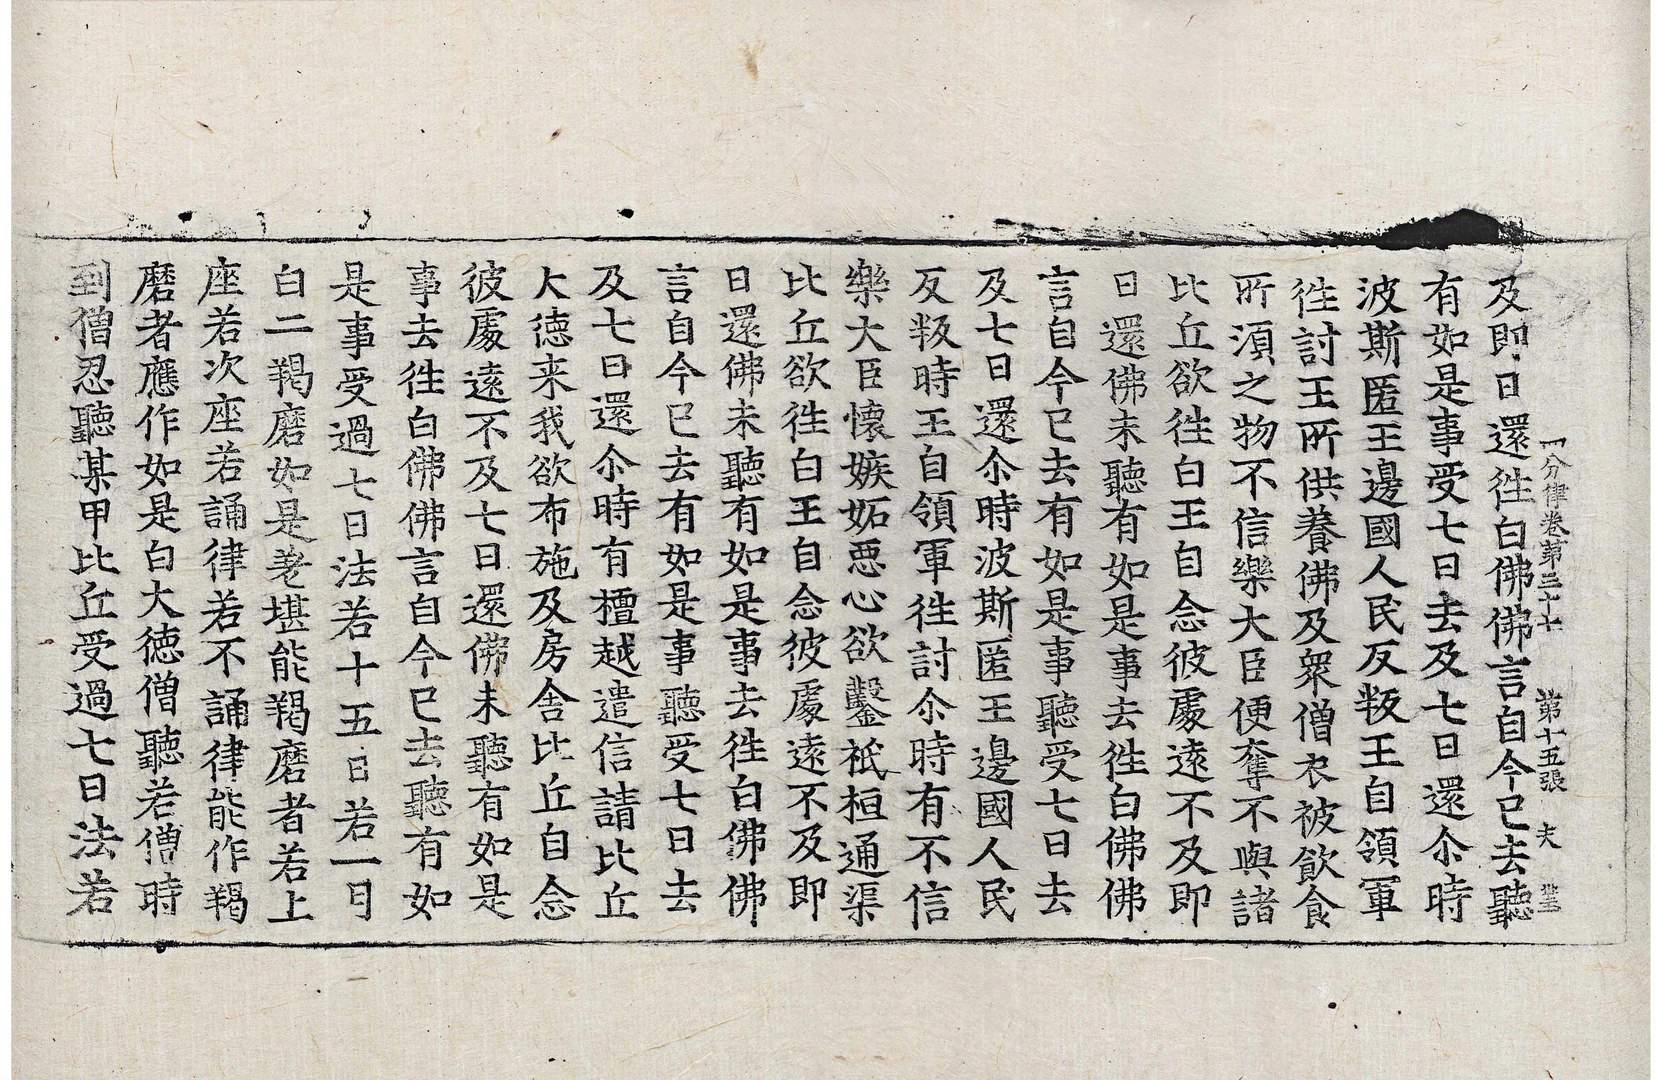 四分律卷第三十七　第十五張　夫
及即日還徃白佛佛言自今已去聽
有如是事受七日去及七日還尒時
波斯匿王邊國人民反叛王自領軍
徃討王所供養佛及衆僧衣被飲食
所湏之物不信樂大臣便奪不與諸
比丘欲徃白王自念彼處遠不及即
日還佛未聽有如是事去徃白佛佛
言自今已去有如是事聽受七日去
及七日還尒時波斯匿王邊國人民
反叛時王自領軍徃討尒時有不信
樂大臣懷嫉妬惡心欲鑿祇桓通渠
比丘欲徃白王自念彼處遠不及即
日還佛未聽有如是事去徃白佛佛
言自今已去有如是事聽受七日去
及七日還尒時有檀越遣信請比丘
大徳来我欲布施及房舎比丘自念
彼處遠不及七日還佛未聽有如是
事去徃白佛佛言自今已去聽有如
是事受過七日法若十五日若一月
白二羯磨如是差堪能羯磨者若上
座若次座若誦律若不誦律能作羯
磨者應作如是白大徳僧聽若僧時
到僧忍聽某甲比丘受過七日法若